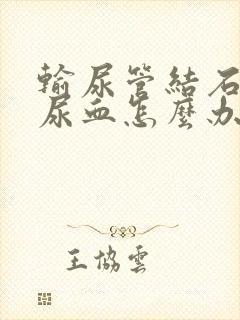 輸尿管結石
尿血怎麼办
王協雲